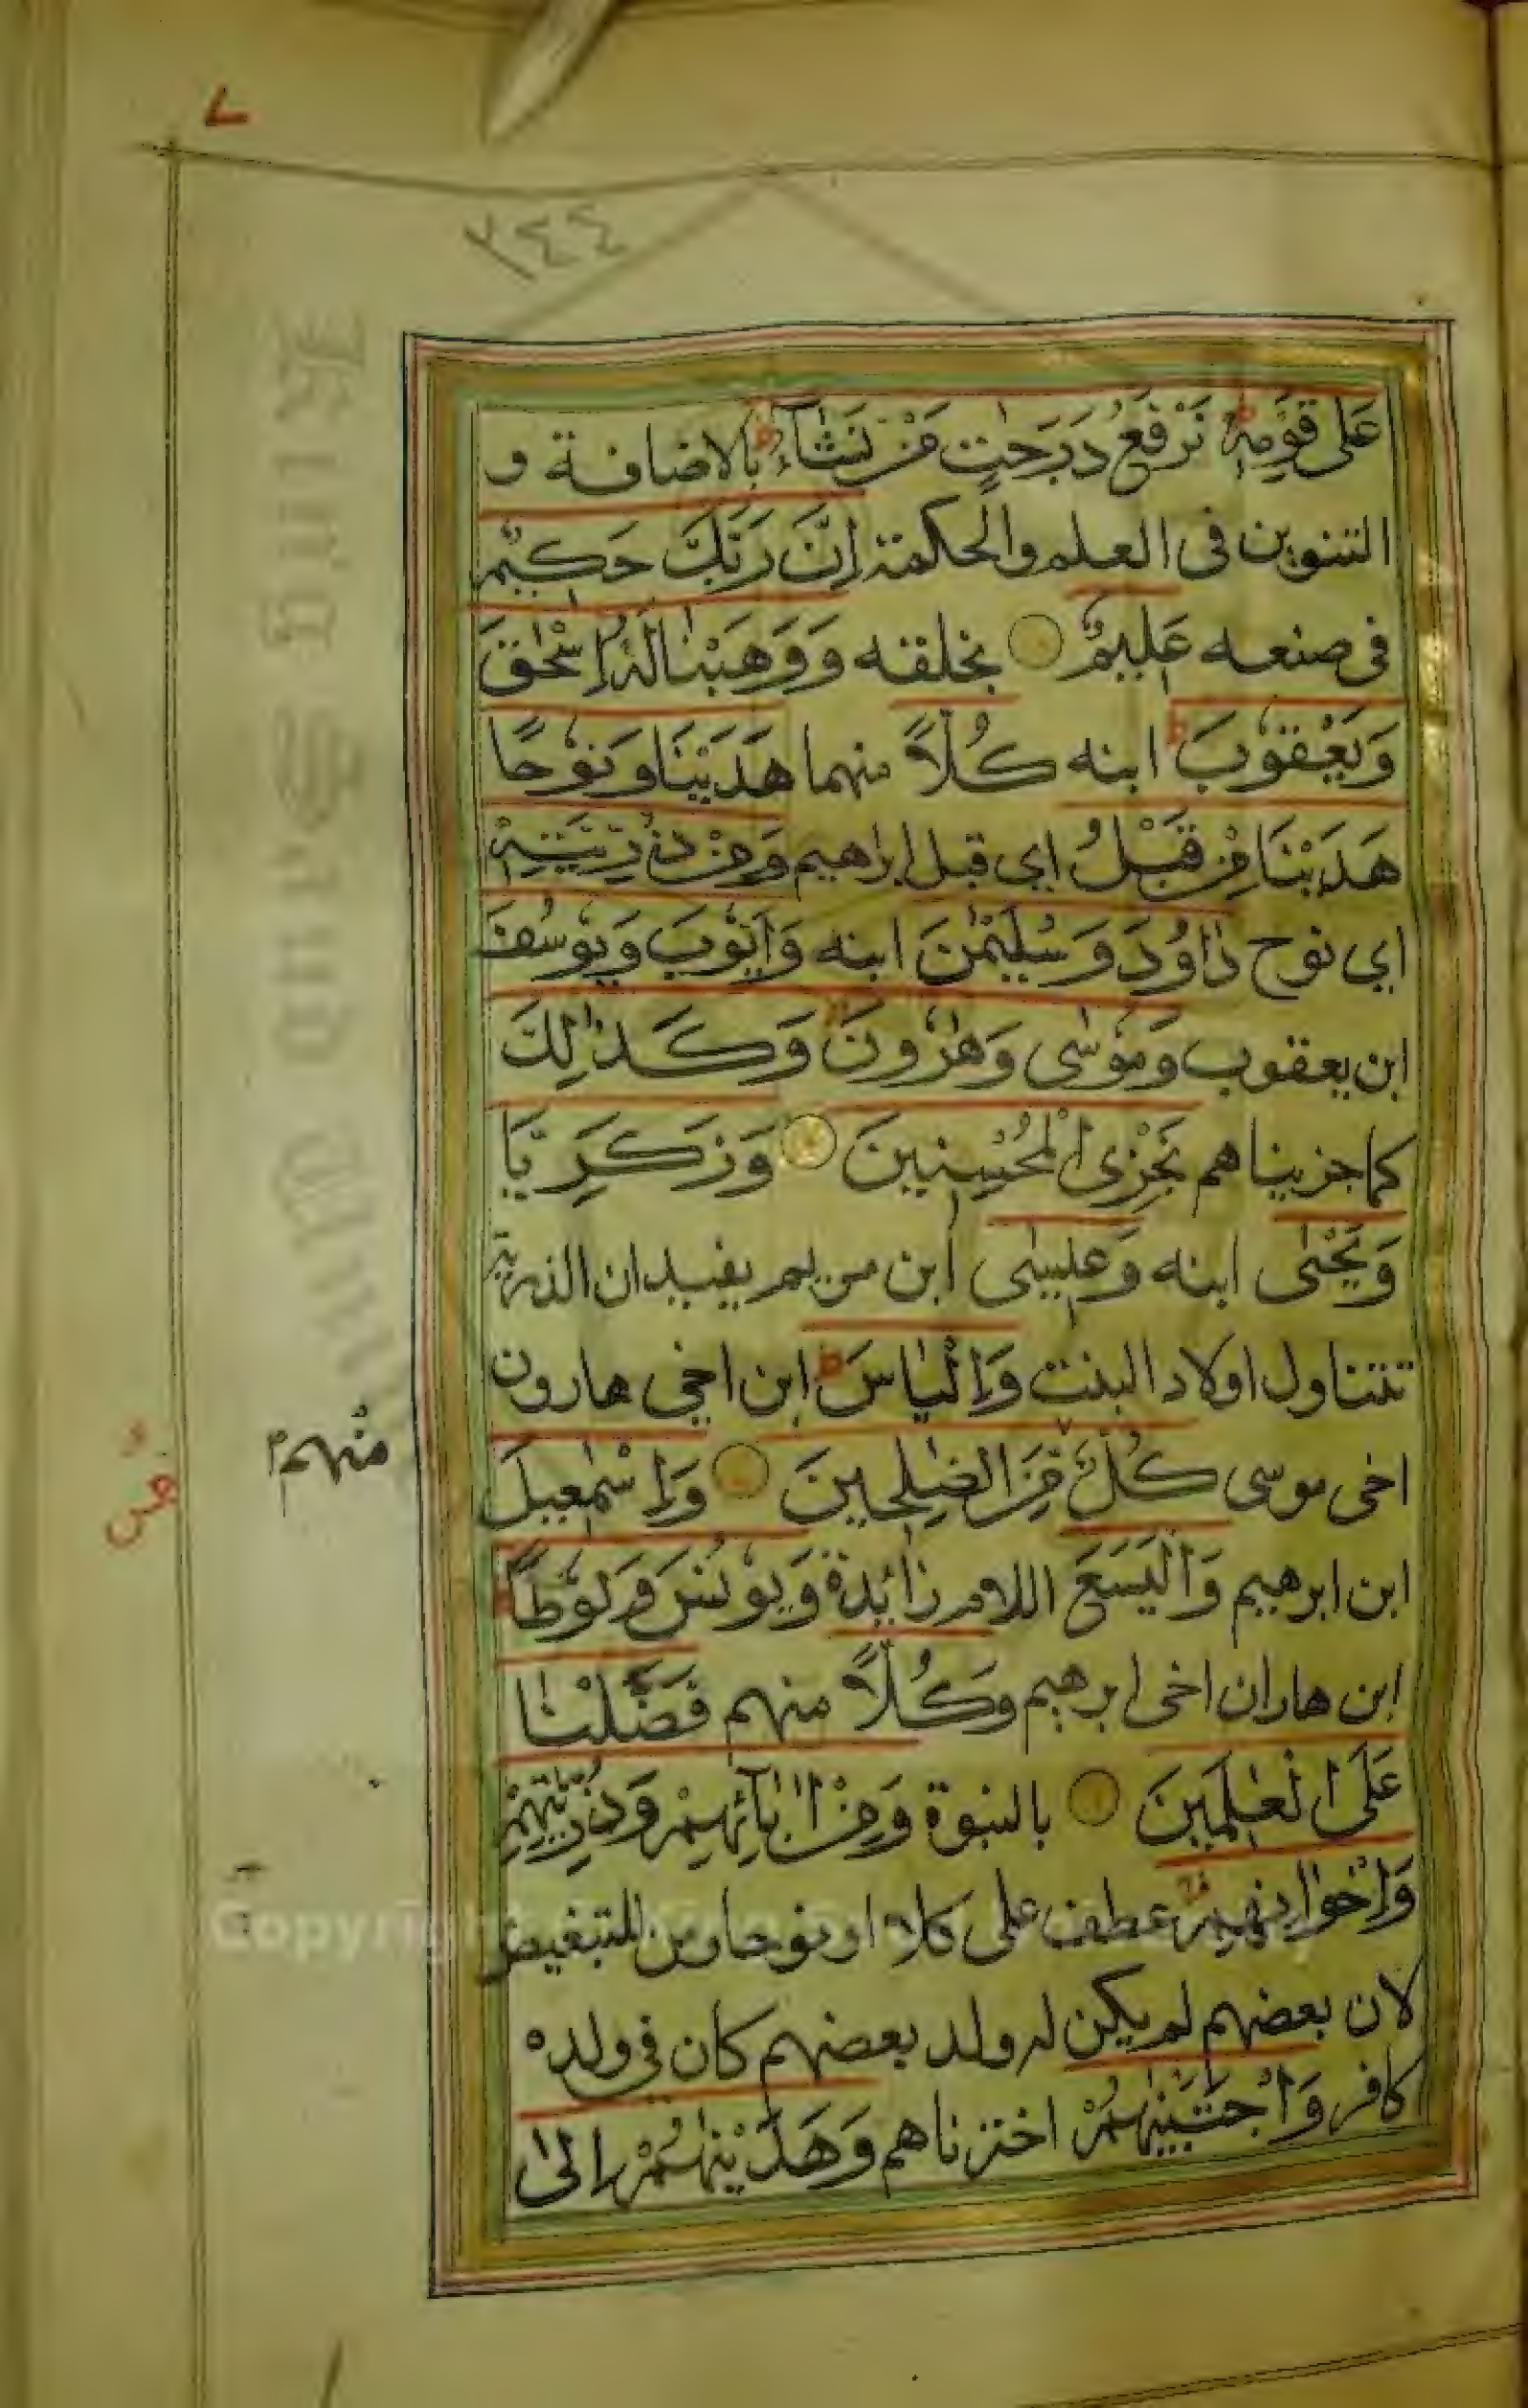 ٧
٢٤٤
عَلٰى قَوْمِهٖ ط نَرْفَعُ دَرَجٰتٍ مَّنْ نَّشَآءُ ط بالاضافة و
التنوين فى العلم والحكمة اِنَّ رَبَّكَ حَكِيْمٌ
فى صنعه عَلِيْمٌ بخلقه وَوَهَبْنَا لَهٗ اِسْحٰقَ
وَيَعْقُوْبَ ط ابنه كُلًّا منهما هَدَيْنَا وَنُوْحًا
هَدَيْنَا مِنْ قَبْلُ اي قبل ابراهيم وَمِنْ ذُرِّيَّتِهٖ
اي نوح دَاوٗدَ وَسُلَيْمٰنَ ابنه وَاَيُّوْبَ وَيُوْسُفَ
ابن يعقوب وَمُوْسٰى وَهٰرُوْنَ ط وَكَذٰلِكَ
كما جزيناهم نَجْزِى الْمُحْسِنِيْنَ وَزَكَرِيَّا
وَيَحْيٰى ابنه وَعِيْسٰى ابن مريم يفيد ان الذرية
تتناول اولاد البنت وَاِلْيَاسَ ط ابن اخي هارون
اخى موسى كُلٌّ مِّنَ الصّٰلِحِيْنَ وَاِسْمٰعِيْلَ
منهم
ابن ابرهيم وَالْيَسَعَ اللام زائدة وَيُوْنُسَ وَلُوْطًا ط
ابن هاران اخى ابرهيم وَكُلًّا منهم فَضَّلْنَا
عَلَى الْعٰلَمِيْنَ بالنبوة وَمِنْ اٰبَآئِهِمْ وَذُرِّيّٰتِهِمْ
وَاِخْوَانِهِمْ عطف على كلا او نوحا ومن للتبغيض
لان بعضهم لم يكن له ولد بعضهم كان في ولده
كافر وَاجْتَبَيْنٰهُمْ اخترناهم وَهَدَيْنٰهُمْ اِلٰى